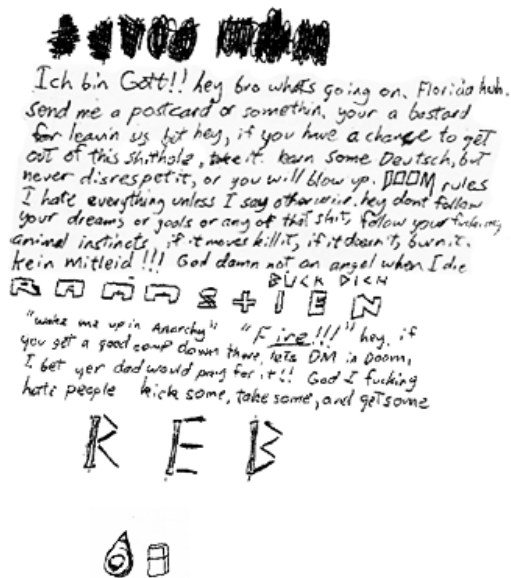 Ich bin Gott!! hey bro whats going on. Florida huh.
send me a postcard or somethin. your a bastard
for leavin us but hey, if you have a chance to get
out of this shithole, take it. learn some Deutsch, but
never disrespect it, or you will blow up. DOOM rules
I hate everything unless I say otherwise. hey dont follow
your dreams or goals or any of that shit, follow your fucking
animal instincts, if it moves kill it, if it doesn't, burn it.
Kein Mitleid!!! God damn not an angel when I die
BUCK DICH
RAMMSTIEN
"wake me up in Anarchy" "Fire!!!" hey, if
you get a good comp down there, lets DM in Doom,
I bet yer dad would pay for it!! God I fucking
hate people kick some, take some, and get some
REB